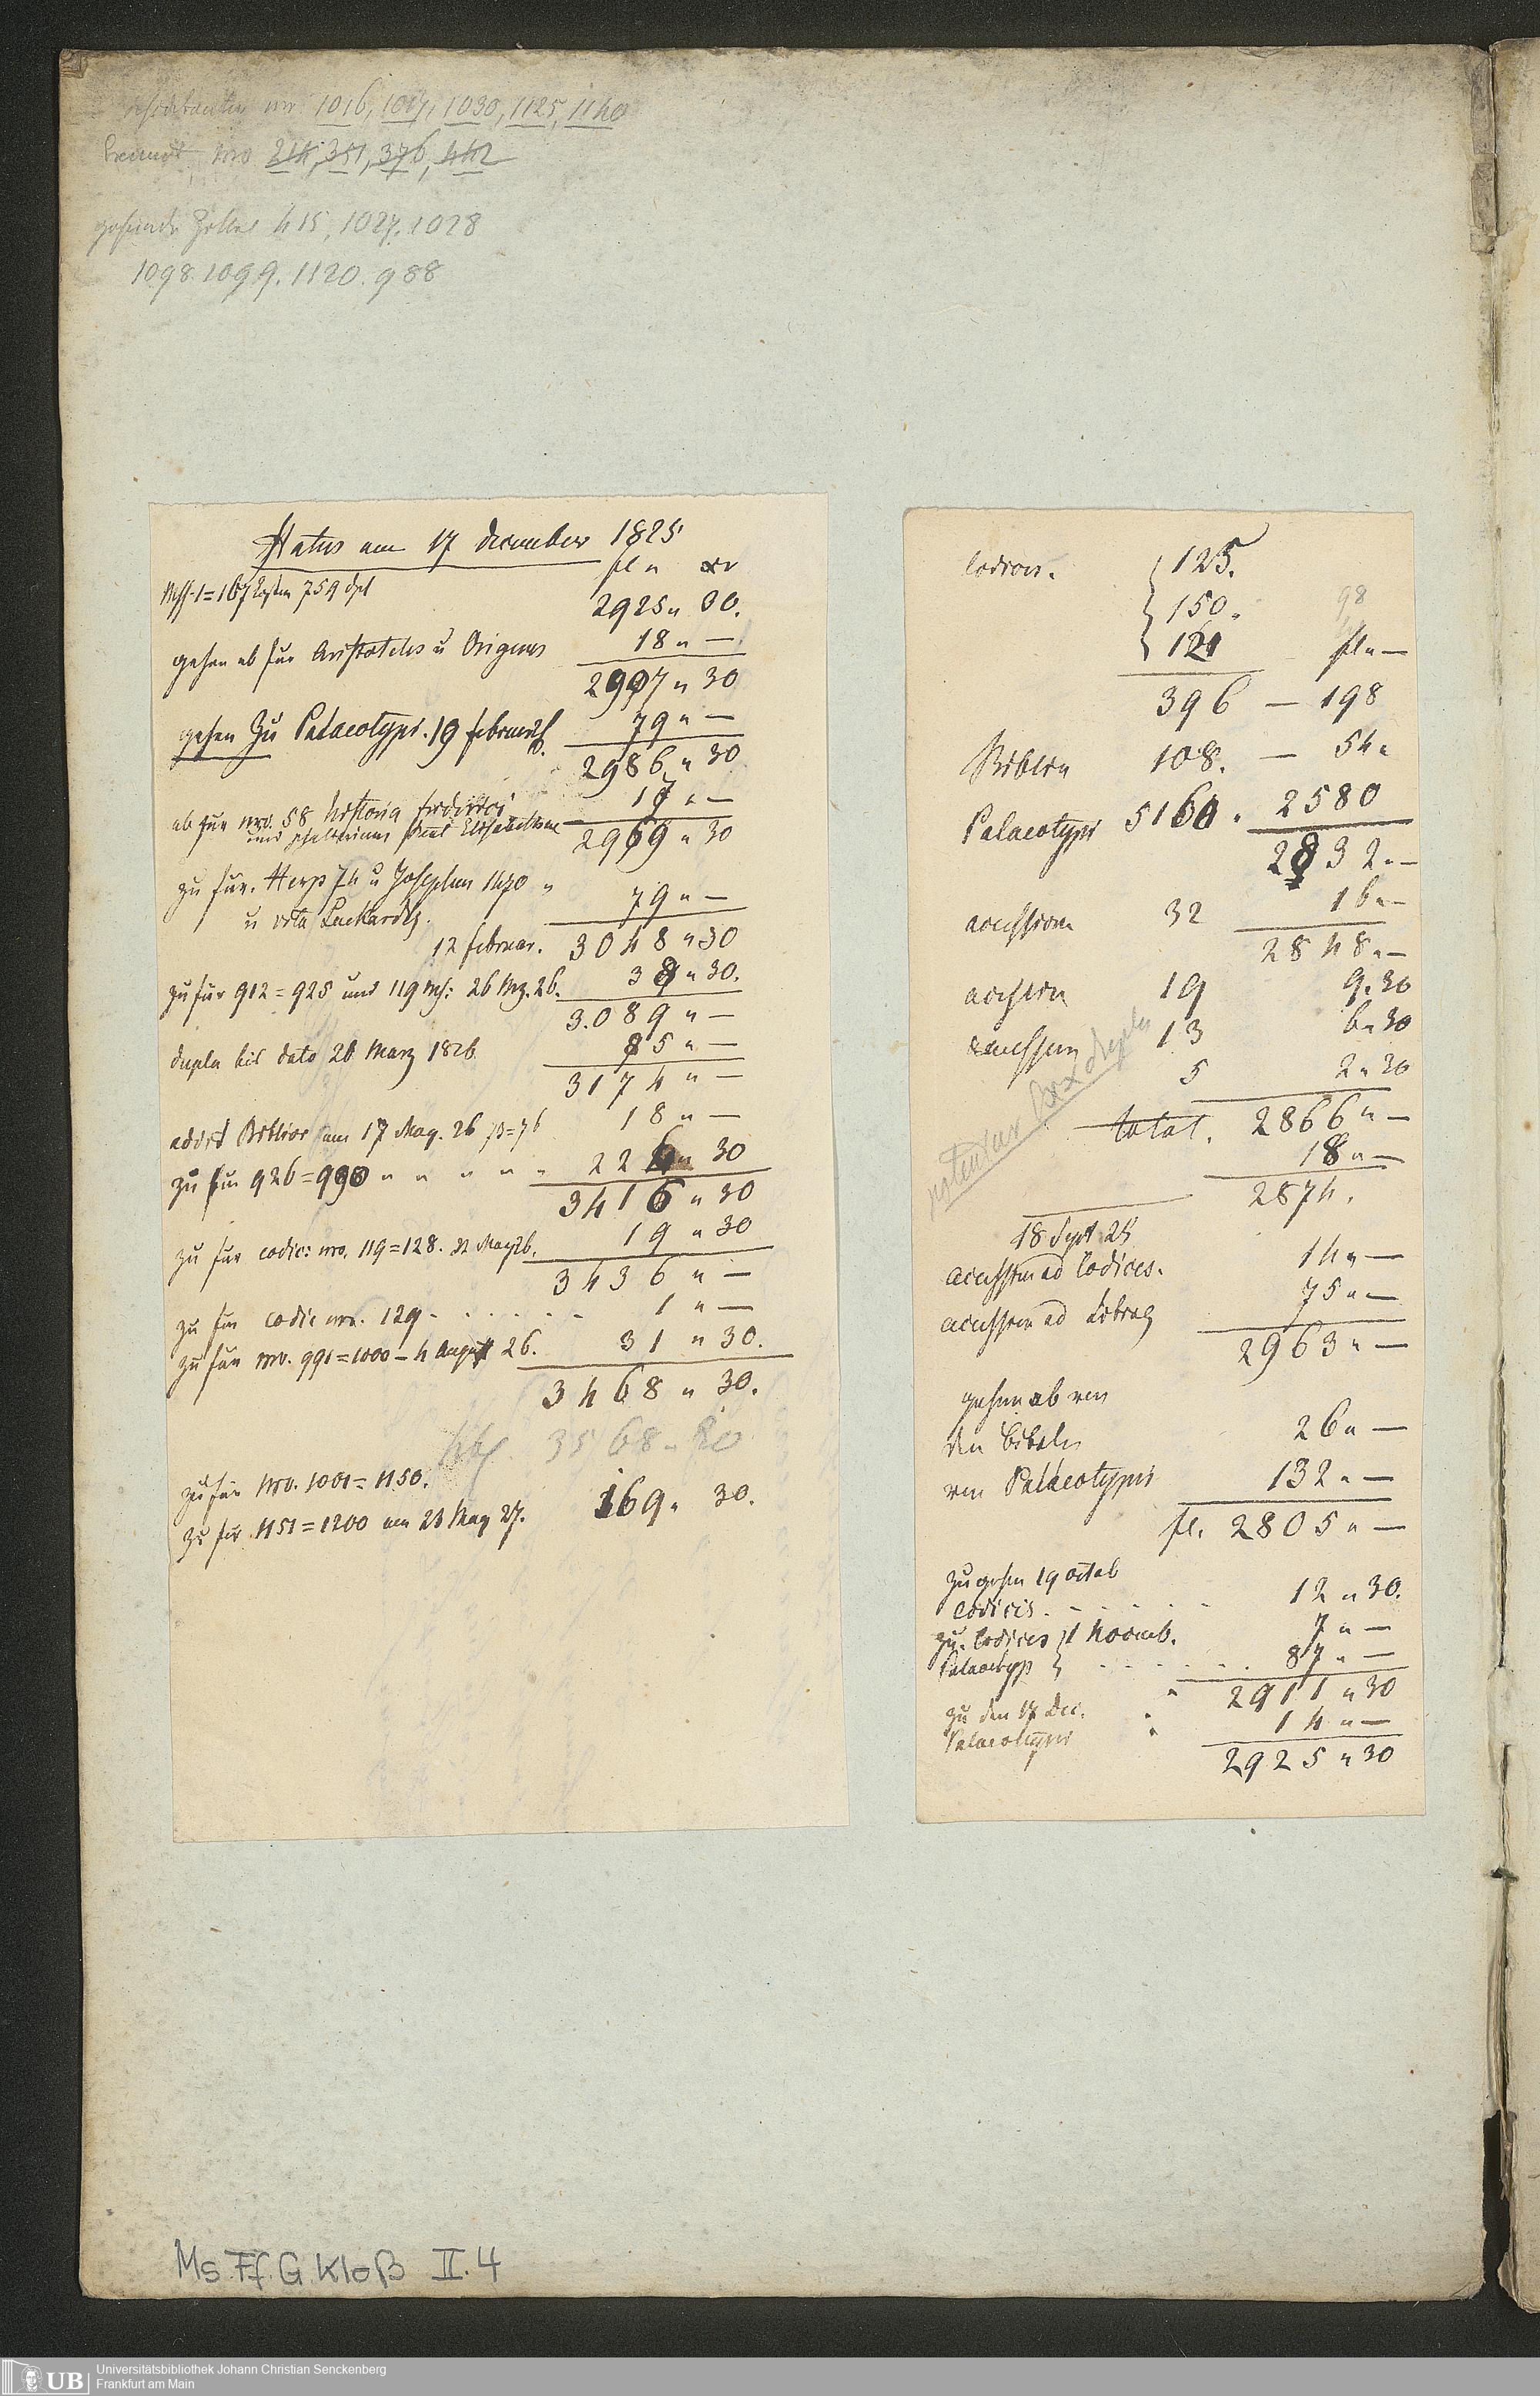 nro 1016, 1017, 1030, 1125, 1140
nro 214, 351, 376, 442
415, 1027. 1028
1098. 1099. 1120. 988
Status am 17 december 1825
fl " xr
Mss. 1=167 759
2925 " 30.
gehen ab für Aristoteles u Origenes 18 " —
2907 " 30
gehen zu Palaeotypi. 19 februar 79 " —
2986 " 30
ab für nro. 58 historia friderici 17 " —
und psalterium Elisabethae 2969 " 30
zu für. Herp 74 u Josephus 1470 "
u vita Luckardis. 79 " —
12 februar. 3048 " 30
zu für 912 = 925 und 119 Ms: 26 Mz. 26. 38 " 30.
3.089 " —
dupla bis dato 26 Marz 1826 85 " —
3174 " —
addit Biblior am 17 May. 26 73=76 18 " —
zu für 926 = 990 " " " " " 224 " 30
3416 " 30
zu für codic: nro. 119=128. 22 May 26. 19 " 30
3436 " —
zu für codic nro. 129 - - - - - - 1 " —
zu für nro. 991=1000 — 4 August 26. 31 " 30.
3468 " 30.
3568 " 20
zu für nro. 1001 = 1150.
zu für 1151 = 1200 am 23 May 27. 169 " 30.
Codices. 125.
150. 98
121 fl " —
396 — 198
Biblia 108. — 54 "
Palaeotypi 5160 . 2580
2832 " —
accession 32 16 " —
2848 " —
accession 19 9 " 30
accession 13 6 " 30
5 2 " 30
dupla
total. 2866 " —
18 " —
2874.
18 Sept 25
accession ad Codices. 14 " —
accession ad Libros 75 " —
2963 " —
gehen ab von
den Bibeln 26 " —
von Palaeotypis 132 " —
fl. 2805 " —
zu gehen 19 octob
Codicis. - - - - - 12 " 30.
zu. Codices } 1 Novemb. 7 " —
Palaeotyp } - - - - - 87 " —
2911 " 30
zu den 17 Dec.
Palaeotypis 14 " —
2925 " 30
Ms. Ff. G. Kloß II. 4
UB
Universitätsbibliothek Johann Christian Senckenberg
Frankfurt am Main